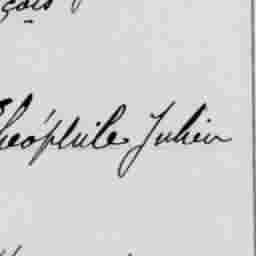 çois
Théophile Julien